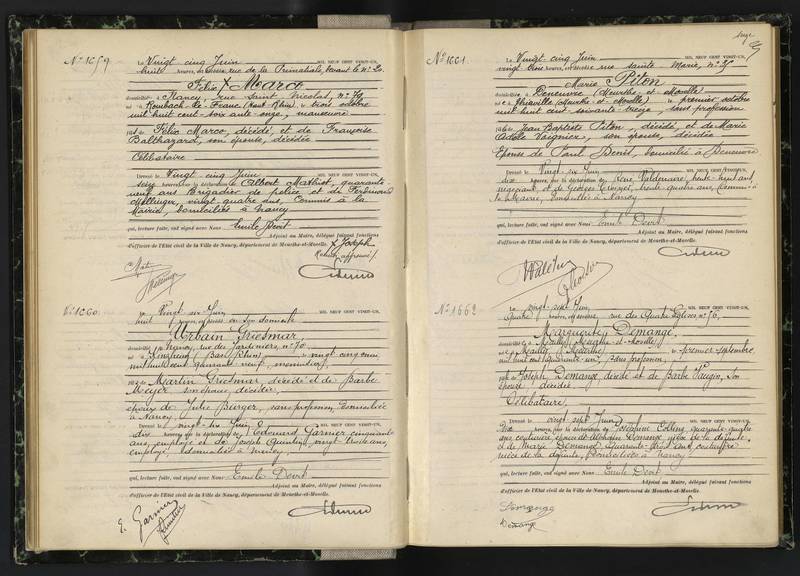 N° 1659
Le Vingt cinq Juin MIL NEUF CENT VINGT-UN,
huit heures, rue de la Primatiale, devant le n° 20.
Félix X Marco
domicilié à Nancy, rue Saint Nicolas, n°
né à Rombach-le-Franc (Haut-Rhin) le trois octobre
mil huit cent soixante onze, manœuvre
fils de Félix Marco, décédé, et de Françoise
Balthazard, son épouse, décédée
Célibataire
Dressé le Vingt cinq Juin MIL NEUF CENT VINGT-UN,
seize heures, sur la déclaration de Albert Mathiot, quarante
neuf ans, Brigadier de police et de Ferdinand
Mellinger, vingt quatre ans, Commis à la
Mairie, domiciliés à Nancy
qui, lecture faite, ont signé avec Nous Emile Devit
Adjoint au Maire, délégué faisant fonctions
d'officier de l'État civil de la Ville de Nancy, département de Meurthe-et-Moselle.
X Joseph
N° 1660
Le Vingt six Juin MIL NEUF CENT VINGT-UN,
huit heures, est décédé en son domicile
Urbain Griesmar
domicilié à Nancy, rue des Jardiniers, n° 70
né à (Bas-Rhin) le vingt cinq mai
mil huit cent quarante neuf, menuisier,
fils de Martin Griesmar décédé et de Barbe
Meyer son épouse, décédée,
époux de Julie Berger, sans profession, domiciliée
à Nancy,
Dressé le vingt-six Juin MIL NEUF CENT VINGT-UN,
dix heures, sur la déclaration de Edouard Garnier cinquante
ans, employé et de Joseph Quintin, vingt trois ans,
employé, domiciliés à Nancy,
qui, lecture faite, ont signé avec Nous Emile Devit
Adjoint au Maire, délégué faisant fonctions
d'officier de l'État civil de la Ville de Nancy, département de Meurthe-et-Moselle.
E. Garnier
N° 1661
Le Vingt-cinq Juin MIL NEUF CENT VINGT-UN,
vingt trois heures, rue Sainte Marie, n°
Marie Piton
domiciliée à Deneuvre (Meurthe et Moselle)
née à Thiaville (Meurthe et Moselle) le premier octobre
mil huit cent soixante treize, sans profession
fille de Jean Baptiste Piton, décédé, et de Marie
Adèle Voignier, son épouse, décédée
Epouse de Paul Benit, domicilié à Deneuvre
Dressé le Vingt six Juin MIL NEUF CENT VINGT-UN,
dix heures, sur la déclaration de René Valdenaire, trente huit ans,
négociant, et de Georges, trente quatre ans, Commis à
la Mairie, domiciliés à Nancy
qui, lecture faite, ont signé avec Nous Emile Devit
Adjoint au Maire, délégué faisant fonctions
d'officier de l'État civil de la Ville de Nancy, département de Meurthe-et-Moselle.
N° 1662
Le vingt-sept Juin MIL NEUF CENT VINGT-UN,
Quatre heures, rue des Quatre Eglises, n° 76,
Marguerite Demange,
domiciliée à (Meurthe-et-Moselle)
née à (Meurthe) le premier septembre
mil huit cent quarante-un, sans profession,
fille de Joseph Demange, décédé et de Barbe Vaugin, son
épouse décédée,
Célibataire,
Dressé le vingt-sept Juin MIL NEUF CENT VINGT-UN,
Dix heures, sur la déclaration de Joséphine Colling, quarante-quatre
ans, couturière, épouse de Demange, nièce de la défunte,
et de Marie Demange, quarante ans,
nièce de la défunte, domiciliées à Nancy,
qui, lecture faite, ont signé avec Nous Emile Devit
Adjoint au Maire, délégué faisant fonctions
d'officier de l'État civil de la Ville de Nancy, département de Meurthe-et-Moselle.
Demange
Demange